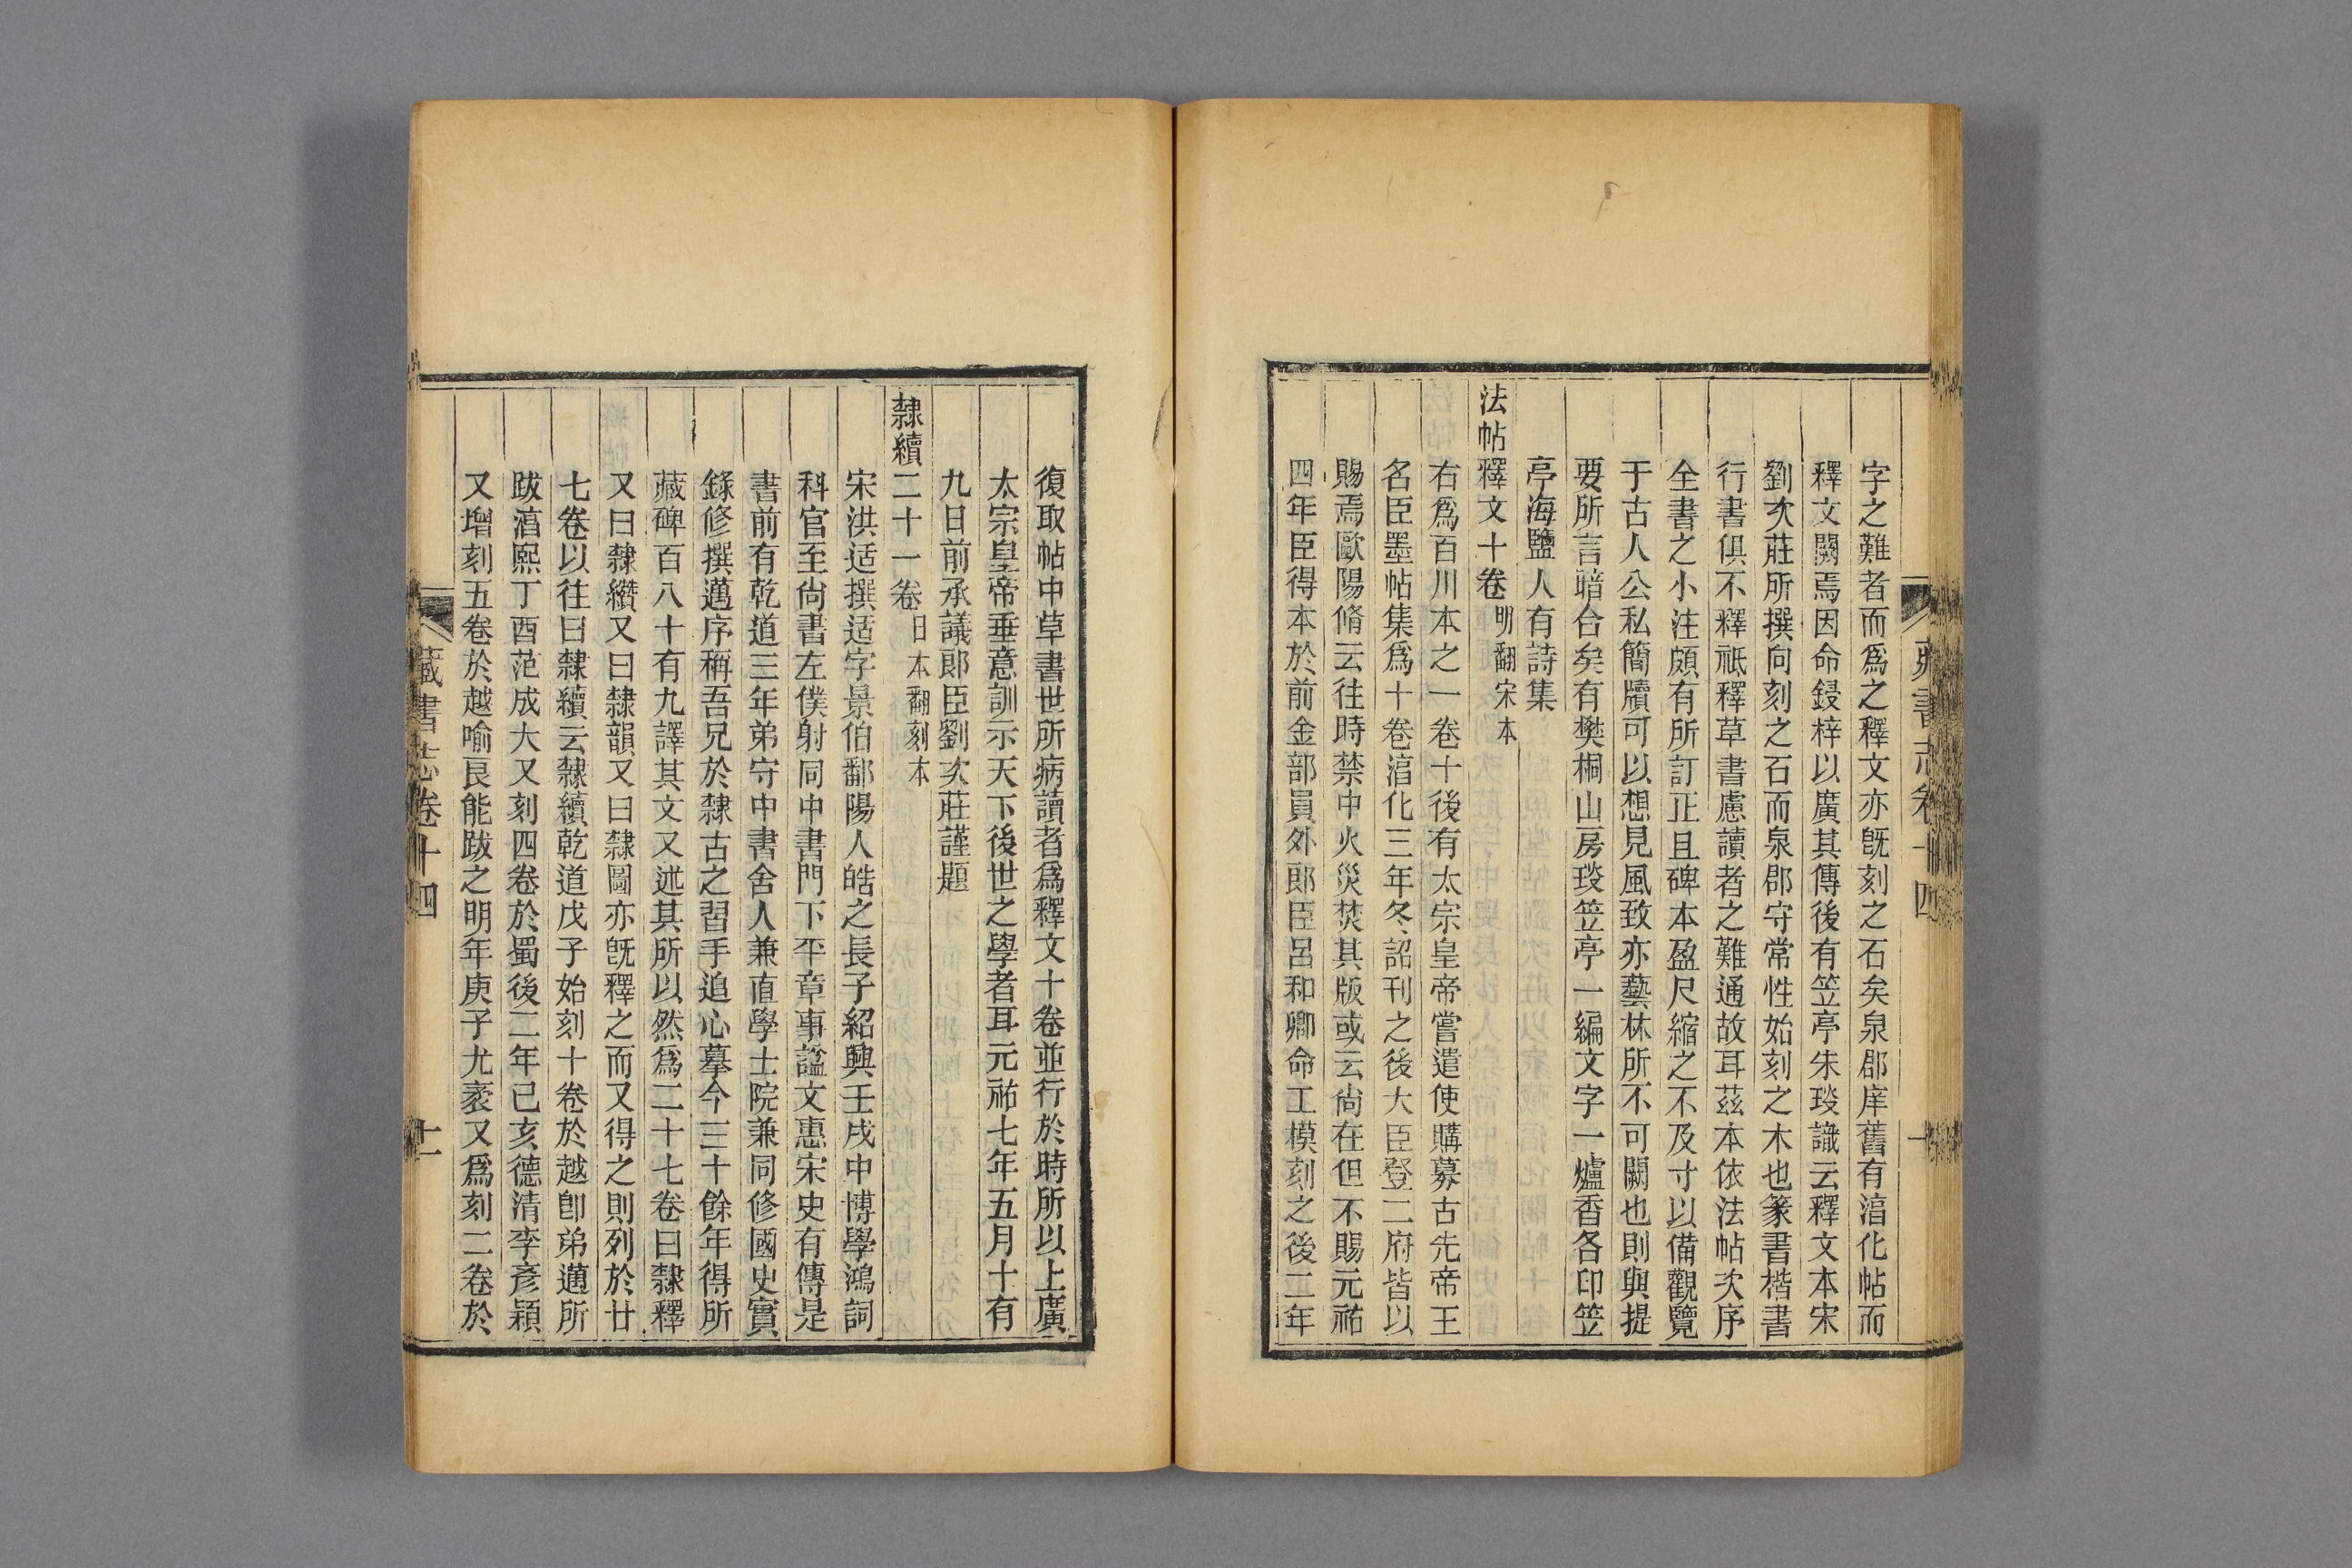 字之難者而爲之釋文亦旣刻之石矣泉郡庠舊有湻化帖而
釋文闕焉因命鋟梓以廣其傳後有笠亭朱琰識云釋文本宋
劉次莊所撰向刻之石而泉郡守常性始刻之木也篆書楷書
行書俱不釋祗釋草書慮讀者之難通故耳茲本依法帖次序
全書之小注頗有所訂正且碑本盈尺縮之不及寸以備觀覽
于古人公私簡牘可以想見風致亦藝林所不可闕也則與提
要所言暗合矣有樊桐山房琰笠亭一編文字一爐香各印笠
亭海鹽人有詩集
法帖釋文十卷明翻宋本
右爲百川本之一卷十後有太宗皇帝嘗遣使購募古先帝王
名臣墨帖集爲十卷湻化三年冬詔刊之後大臣登二府皆以
賜焉歐陽脩云往時禁中火災焚其版或云尙在但不賜元祐
四年臣得本於前金部員外郎臣呂和卿命工模刻之後二年
藏書志卷十四
復取帖中草書世所病讀者爲釋文十卷並行於時所以上廣
太宗皇帝垂意訓示天下後世之學者耳元祐七年五月十有
九日前承議郎臣劉次莊謹題
隸續二十一卷日本翻刻本
宋洪适撰适字景伯鄱陽人皓之長子紹興壬戌中博學鴻詞
科官至尙書左僕射同中書門下平章事諡文惠宋史有傳是
書前有乾道三年弟守中書舍人兼直學士院兼同修國史實
錄修撰邁序稱吾兄於隸古之習手追心摹今三十餘年得所
藏碑百八十有九譯其文又述其所以然爲二十七卷曰隸釋
又曰隸纘又曰隸韻又曰隸圖亦旣釋之而又得之則列於廿
七卷以往曰隸續云隸續乾道戊子始刻十卷於越卽弟邁所
跋湻熙丁酉范成大又刻四卷於蜀後二年己亥德清李彥穎
又增刻五卷於越喻良能跋之明年庚子尤袤又爲刻二卷於
藏書志卷十四
十一